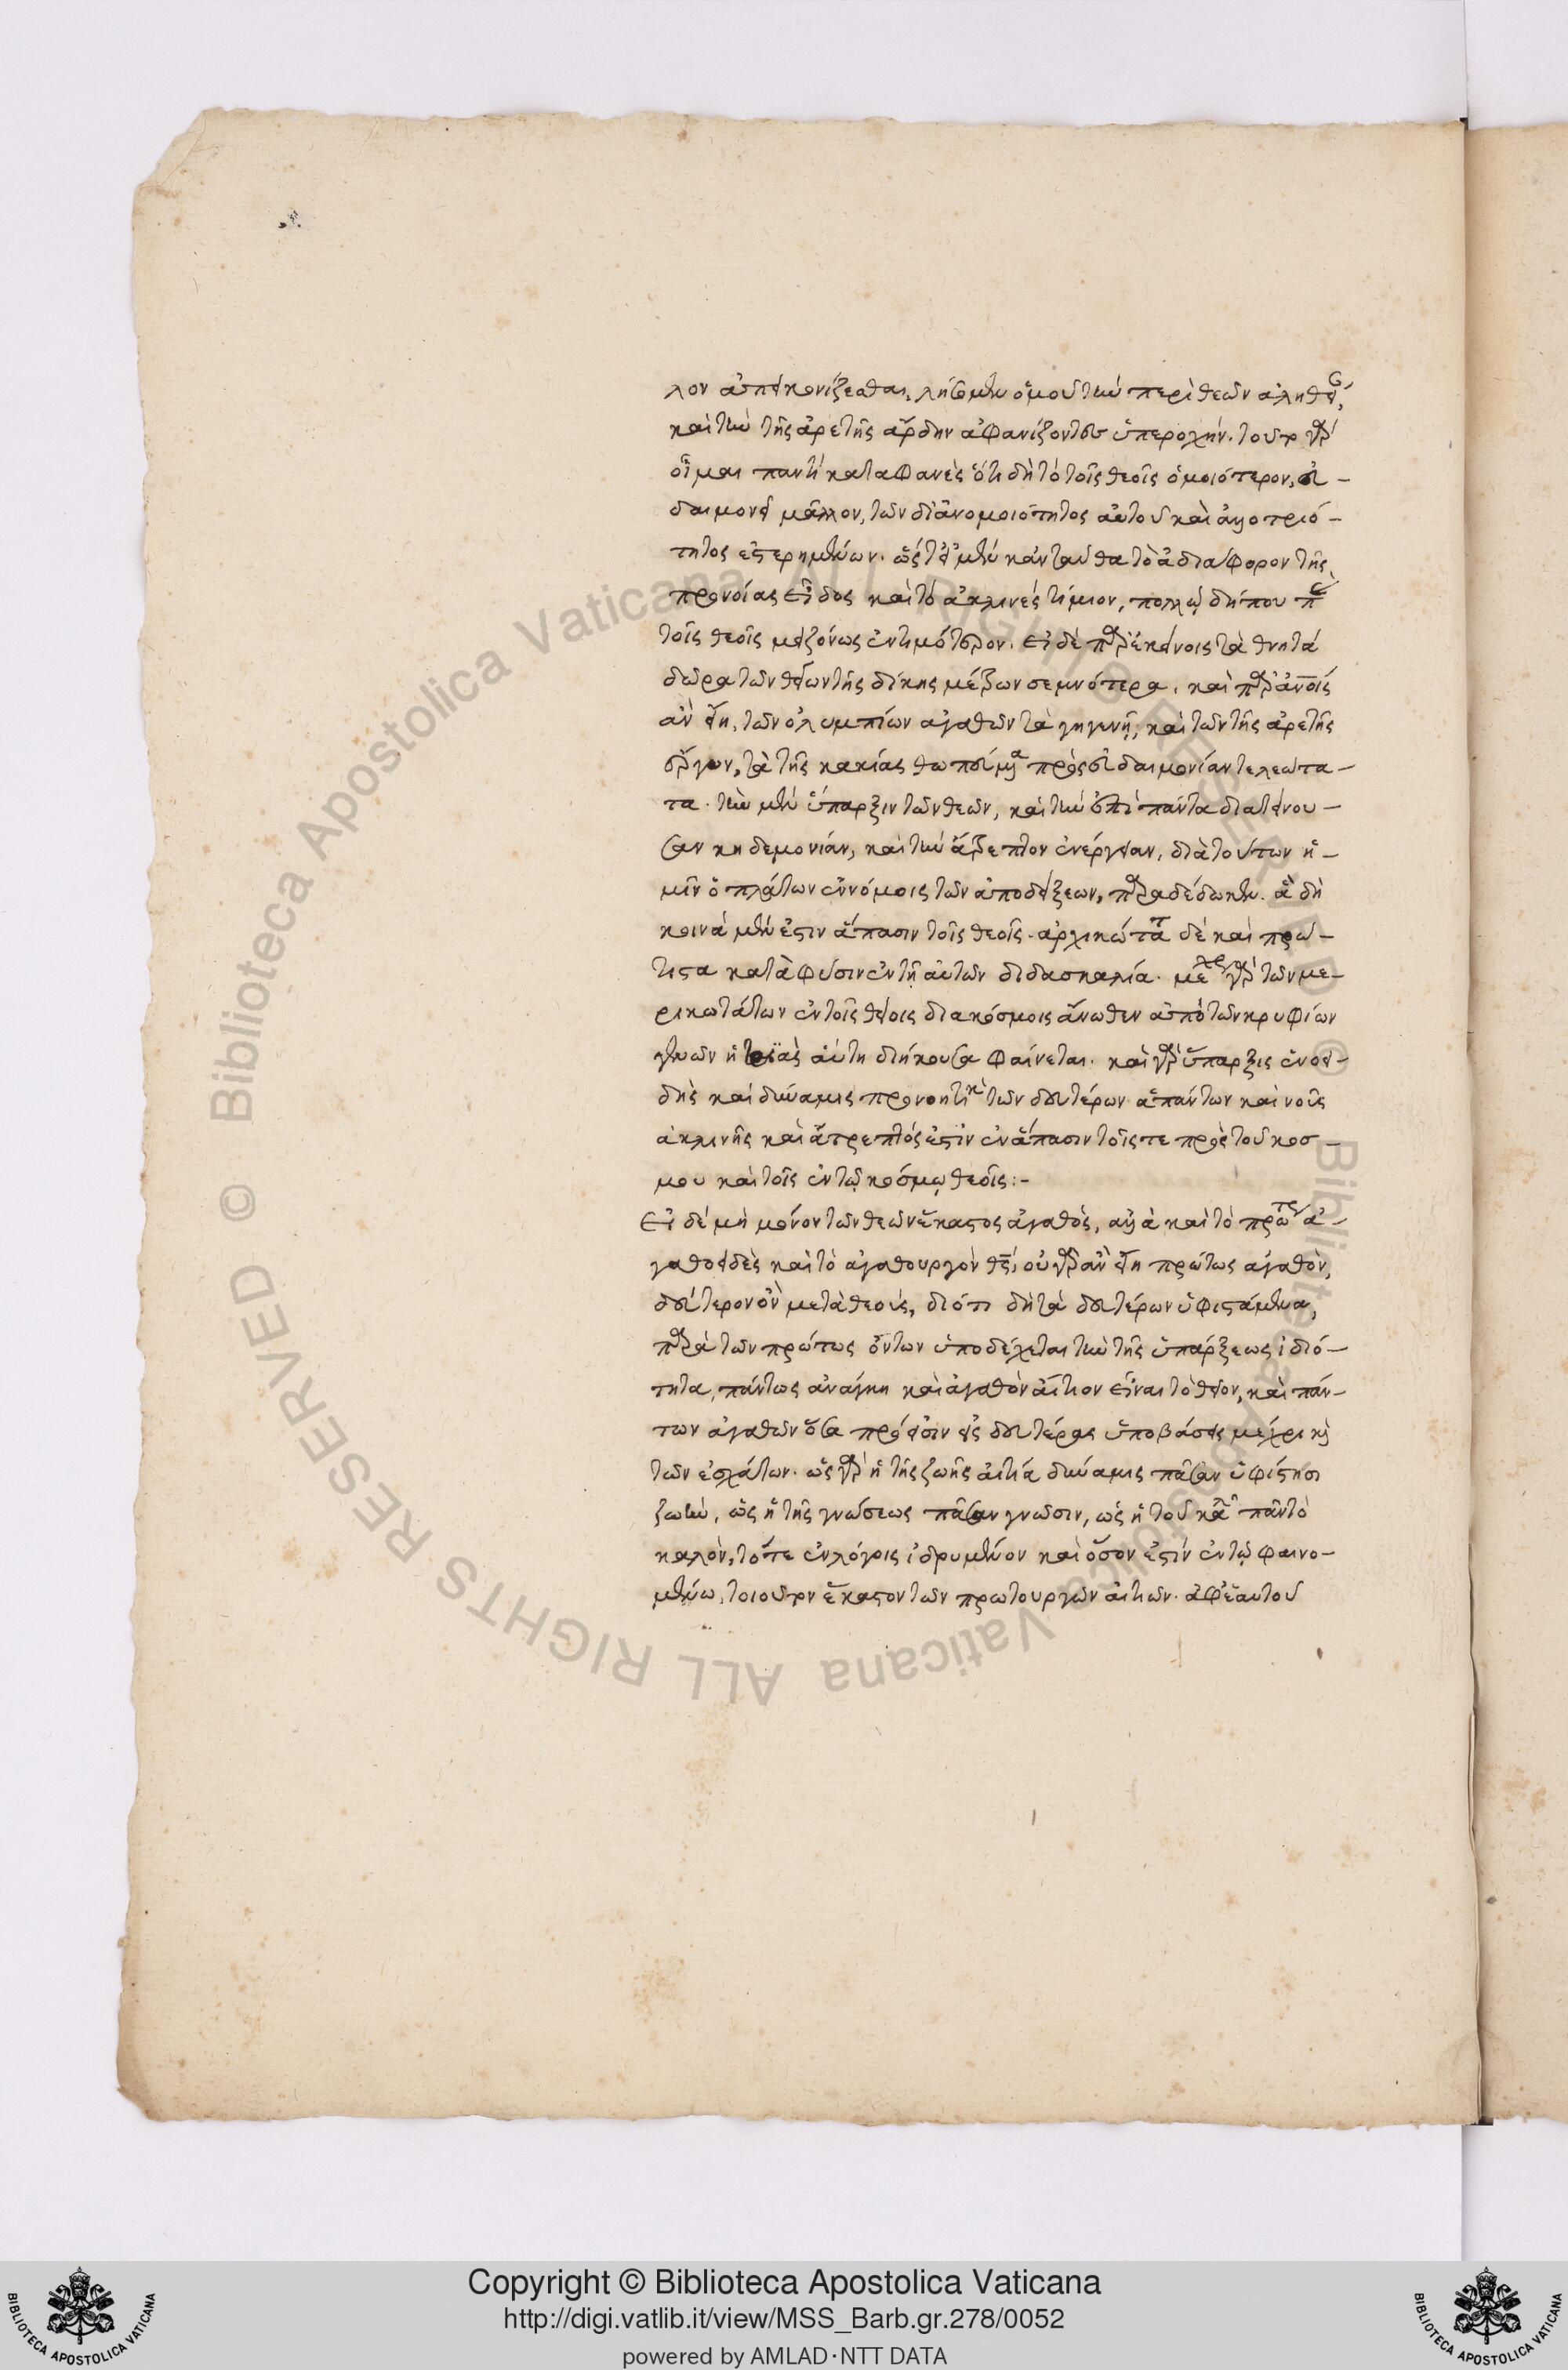 λον ἀπεικονίζεσθαι, λήσομεν ὁμοῦ τὴν περὶ θεῶν ἀλήθειαν,
καὶ τὴν τῆς ἀρετῆς ἄρδην ἀφανίζοντες ὑπεροχήν. τοῦτο γὰρ
οἶμαι παντὶ καταφανὲς ὅτι δὴ τὸ τοῖς θεοῖς ὁμοιότερον, εὐ-
δαιμονεῖ μᾶλλον, τῶν δι' ἀνομοιότητος αὐτοῦ καὶ ἀλλοτριό-
τητος ἐστερημένων. ὥστ' εἰ μὲν κἀνταῦθα τὸ ἀδιάφορον τῆς
προνοίας εἶδος καὶ τὸ ἀκλινὲς τίμιον, πολλῷ δήπου παρὰ
τοῖς θεοῖς μειζόνως ἐντιμότερον. εἰ δὲ παρ' ἐκείνοις τὰ θνητὰ
δῶρα τῶν θείων τῆς δίκης μέτρων σεμνότερα, καὶ παρ' ἀνοις
ἂν εἴη, τῶν ὀλυμπίων ἀγαθῶν τὰ γηγενῆ, καὶ τῶν τῆς ἀρετῆς
ἔργων, τὰ τῆς κακίας θωπεύματα πρὸς εὐδαιμονίαν τελεώτα-
τα. τὴν μὲν ὕπαρξιν τῶν θεῶν, καὶ τὴν ἐπὶ πάντα διατείνου-
σαν κηδεμονίαν, καὶ τὴν ἄτρεπτον ἐνέργειαν, διὰ τούτων ἡ-
μῖν ὁ πλάτων ἐν νόμοις τῶν ἀποδείξεων, παραδέδωκεν. ἃ δὴ
κοινὰ μέν ἐστιν ἅπασιν τοῖς θεοῖς. ἀρχικώτατα δὲ καὶ πρώ-
τιστα κατὰ φύσιν ἐν τῇ αὐτῶν διδασκαλίᾳ. μέχρι γὰρ τῶν με-
ρικωτάτων ἐν τοῖς θείοις διακόσμοις ἄνωθεν ἀπὸ τῶν κρυφίων
γενῶν ἡ τριὰς αὕτη διήκουσα φαίνεται. καὶ γὰρ ὕπαρξις ἑνοει-
δὴς καὶ δύναμις προνοητικὴ τῶν δευτέρων ἁπάντων καὶ νοῦς
ἀκλινὴς καὶ ἄτρεπτός ἐστιν ἐν ἅπασιν τοῖς τε πρὸ τοῦ κοσ-
μου καὶ τοῖς ἐν τῷ κόσμῳ θεοῖς:-
Εἰ δὲ μὴ μόνον τῶν θεῶν ἕκαστος ἀγαθός, ἀλλὰ καὶ τὸ πρώτως ἀ-
γαθοειδὲς καὶ τὸ ἀγαθουργὸν θς, οὐ γὰρ ἂν εἴη πρώτως ἀγαθὸν,
δεύτερον ὂν μετὰ θεούς, διότι δὴ τὰ δευτέρων ὑφιστάμενα,
παρὰ τῶν πρώτως ὄντων ὑποδέχεται τὴν τῆς ὑπάρξεως ἰδιό-
τητα, πάντως ἀνάγκη καὶ ἀγαθὸν αἴτιον εἶναι τὸ θεῖον, καὶ πάν-
των ἀγαθῶν ὅσα πρόεισιν εἰς δευτέρας ὑποβάσεις μέχρι καὶ
τῶν ἐσχάτων. ὡς γὰρ ἡ τῆς ζωῆς αἰτία δύναμις πᾶσαν ὑφίστησι
ζωήν, ὡς ἡ τῆς γνώσεως πᾶσαν γνῶσιν, ὡς ἡ τοῦ καλοῦ πᾶν τὸ
καλὸν, τό τε ἐν λόγοις ἱδρυμένον καὶ ὅσον ἐστὶν ἐν τῷ φαινο-
μένῳ, τοιοῦτον ἕκαστον τῶν πρωτουργῶν αἰτιῶν. ἀφ' ἑαυτοῦ
© Biblioteca Apostolica Vaticana ALL RIGHTS RESERVED
© Biblioteca Apostolica Vaticana ALL RIGHTS RESERVED
Copyright © Biblioteca Apostolica Vaticana
http://digi.vatlib.it/view/MSS_Barb.gr.278/0052
powered by AMLAD·NTT DATA
BIBLIOTECA APOSTOLICA VATICANA
BIBLIOTECA APOSTOLICA VATICANA